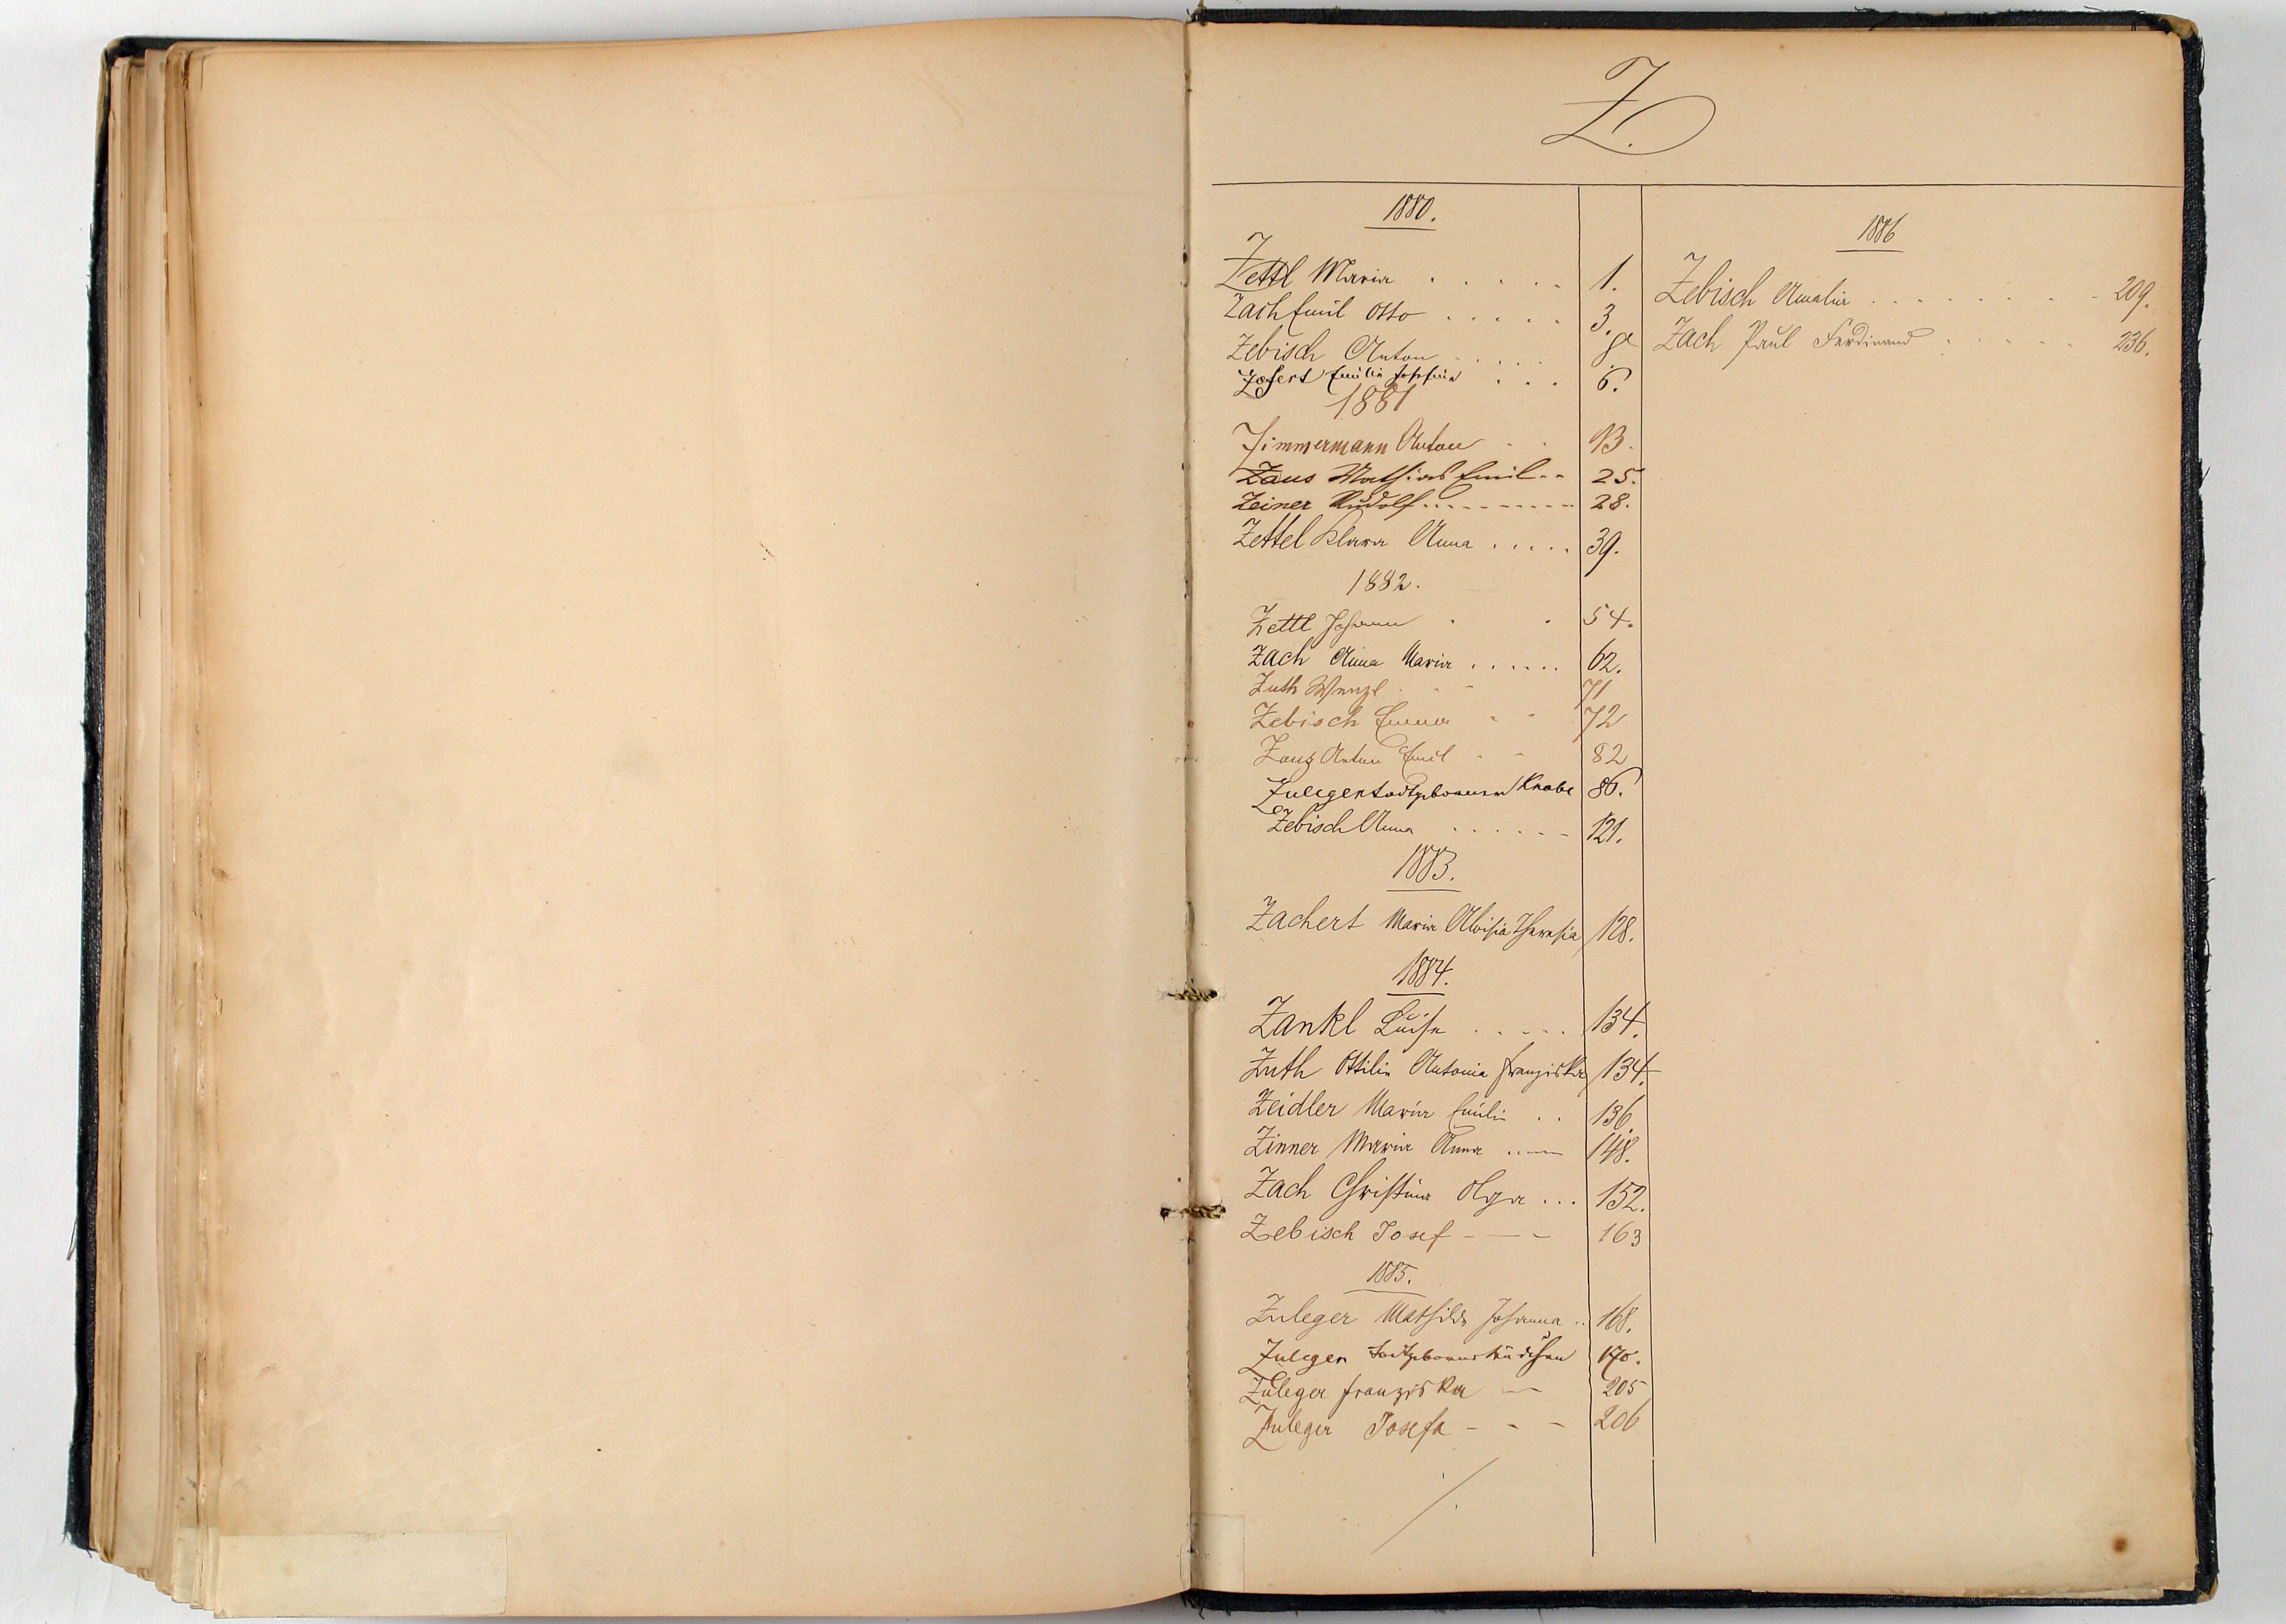 Z.
1880.
Zettl Maria . . . . . 1.
Zach Emil Otto . . . . . 3.
Zebisch Anton . . . .
Emilie Josefine . . . 6.
1881
Zimmermann Anton . . 13.
Zaus Mathias Emil - - 25.
Zeiner Rudolf . . . . . . . . . 28.
Zettel Klara Anna . . . . . 39.
1882.
Zettl Johann . . 54.
Zach Anna Maria . . . . . . 62.
Zuth Wenzl . - - 71
Zebisch Emma - - 72
Zanz Anton Emil - - 82
Zuleger todtgeborener Knabe 86.
Zebisch Anna . . . . . . 121.
1883.
Zachert Maria Aloisia Theresia 128.
1884.
Zankl Luise . . . . . 134.
Zuth Ottilie Antonia Franziska 134.
Zeidler Maria Emilie . . 136.
Zinner Maria Anna ..... 148.
Zach Christina Olga . . . 152.
Zebisch Josef - - - 163
1885.
Zuleger Mathilde Johanna .. 168.
Zuleger todtgebornes Mädchen 170.
Zuleger Franziska — 205
Zuleger Josefa - - - 206
1886
Zebisch Amalia . . . . . . . . 209.
Zach Paul Ferdinand . . . . . 236.